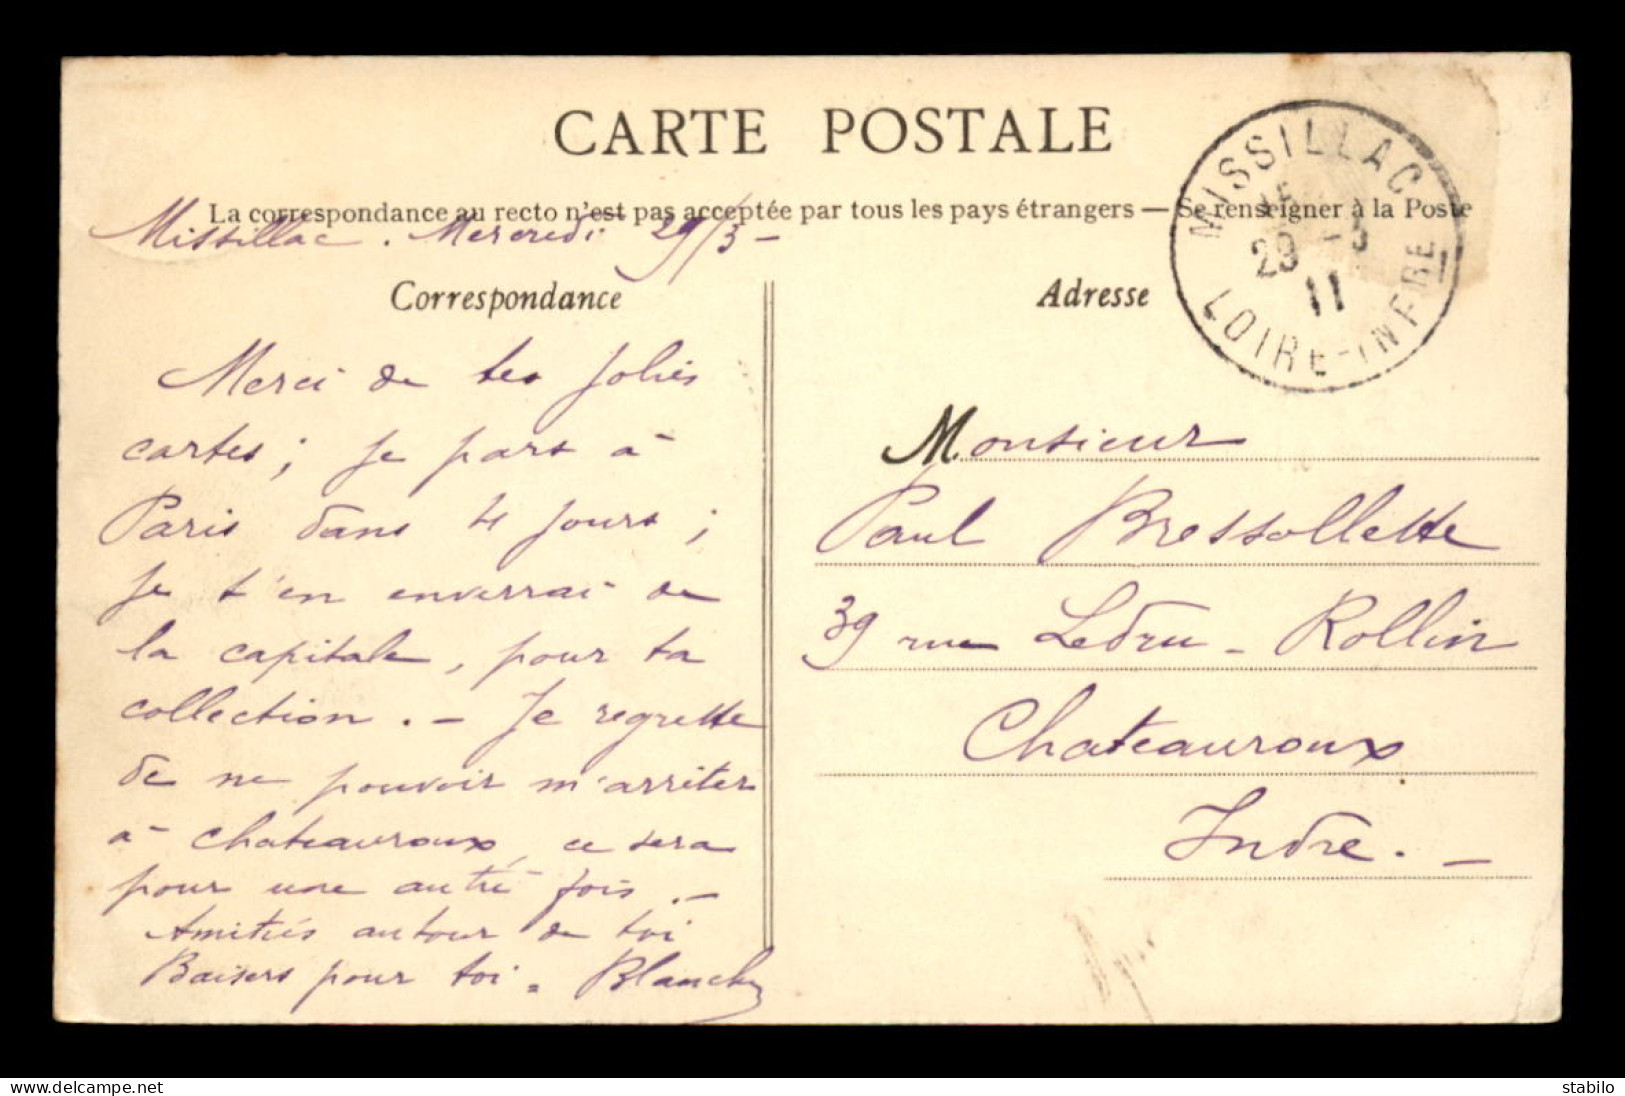 CARTE POSTALE
La correspondance au recto n'est pas acceptée par tous les pays étrangers — Se renseigner à la Poste
Missillac. Mercredi 29/3 -
Correspondance
Merci de tes jolies
cartes; je pars à
Paris dans 4 jours;
je t'en enverrai de
la capitale, pour ta
collection. - Je regrette
de ne pouvoir m'arrêter
à Chateauroux, ce sera
pour une autre fois. -
Amitiés autour de toi
Baisers pour toi - Blanche
Adresse
MISSILLAC
29 -3
11
LOIRE-INFRE
Monsieur
Paul Bressollette
39 rue Ledru-Rollin
Chateauroux
Indre. -
stabilo